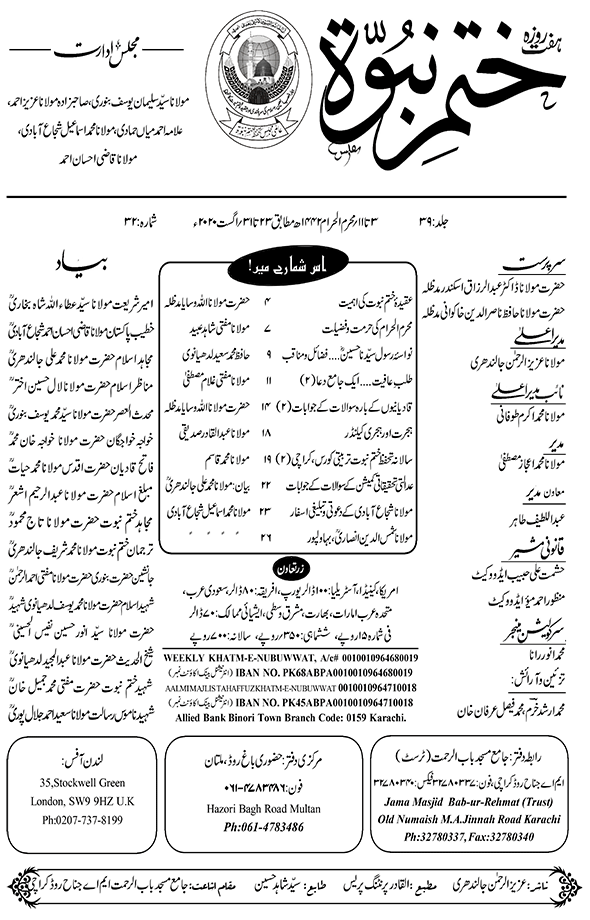 ہفت روزہ
ختم نبوۃ
مجلس ادارت
مولانا سید سلیمان یوسف بنوری، صاحبزادہ مولانا عزیز احمد،
علامہ احمد میاں حمادی، مولانا محمد اسماعیل شجاع آبادی،
مولانا قاضی احسان احمد
جلد: ۳۹
۳ تا ۱۱ محرم الحرام ۱۴۴۲ھ مطابق ۲۳ تا ۳۱ اگست ۲۰۲۰ء
شمارہ: ۳۲
سرپرست
حضرت مولانا ڈاکٹر عبدالرزاق اسکندر مدظلہ
حضرت مولانا حافظ ناصرالدین خاکوانی مدظلہ
مدیر اعلیٰ
مولانا عزیزالرحمٰن جالندھری
نائب مدیر اعلیٰ
مولانا محمد اکرم طوفانی
مدیر
مولانا محمد اعجاز مصطفیٰ
معاون مدیر
عبداللطیف طاہر
قانونی مشیر
حشمت علی حبیب ایڈووکیٹ
منظور احمد میؤ ایڈووکیٹ
سرکولیشن منیجر
محمد انور رانا
تزئین و آرائش:
محمد ارشد خرم، محمد فیصل عرفان خان
اس شمارے میں!
عقیدۂ ختم نبوت کی اہمیت ۴ حضرت مولانا اللہ وسایا مدظلہ
محرم الحرام کی حرمت و فضیلت ۷ مولانا مفتی شاہد عبید
نواسۂ رسول سیدنا حسینؓ.... فضائل و مناقب ۹ حافظ محمد سعید لدھیانوی
طلب عافیت.... ایک جامع دعا (۲) ۱۱ مولانا مفتی غلام مصطفیٰ
قادیانیوں کے بارہ سوالات کے جوابات (۲) ۱۴ حضرت مولانا اللہ وسایا مدظلہ
ہجرت اور ہجری کیلنڈر ۱۸ مولانا عبدالقادر صدیقی
سالانہ تحفظ ختم نبوت تربیتی کورس، کراچی (۲) ۱۹ مولانا محمد قاسم
عدالتی تحقیقاتی کمیشن کے سوالات کے جوابات ۲۲ بیان: مولانا محمد علی جالندھریؒ
مولانا شجاع آبادی کے دعوتی و تبلیغی اسفار ۲۳ مولانا محمد اسماعیل شجاع آبادی
مولانا شمس الدین انصاریؒ، بہاولپور ۲۶ " " " "
زرتعاون
امریکا، کینیڈا، آسٹریلیا: ۱۰۰ ڈالر یورپ، افریقہ: ۸۰ ڈالر، سعودی عرب،
متحدہ عرب امارات، بھارت، مشرق وسطیٰ، ایشیائی ممالک: ۷۰ ڈالر
فی شمارہ ۱۵ روپے، ششماہی: ۳۵۰ روپے، سالانہ: ۷۰۰ روپے
WEEKLY KHATM-E-NUBUWWAT, A/c# 0010010964680019
IBAN NO. PK68ABPA0010010964680019 (انٹرنیشنل بینک اکاؤنٹ نمبر)
AALMIMAJLISTAHAFFUZKHATM-E-NUBUWWAT 0010010964710018
IBAN NO. PK45ABPA0010010964710018 (انٹرنیشنل بینک اکاؤنٹ نمبر)
Allied Bank Binori Town Branch Code: 0159 Karachi.
بیاد
امیر شریعت مولانا سید عطاء اللہ شاہ بخاریؒ
خطیب پاکستان مولانا قاضی احسان احمد شجاع آبادیؒ
مجاہد اسلام حضرت مولانا محمد علی جالندھریؒ
مناظر اسلام حضرت مولانا لال حسین اخترؒ
محدث العصر حضرت مولانا سید محمد یوسف بنوریؒ
خواجہ خواجگان حضرت مولانا خواجہ خان محمدؒ
فاتح قادیان حضرت اقدس مولانا محمد حیاتؒ
مبلغ اسلام حضرت مولانا عبدالرحیم اشعرؒ
مجاہد ختم نبوت حضرت مولانا تاج محمودؒ
ترجمان ختم نبوت مولانا محمد شریف جالندھریؒ
جانشین حضرت بنوری حضرت مولانا مفتی احمدالرحمٰنؒ
شہید اسلام حضرت مولانا محمد یوسف لدھیانوی شہیدؒ
حضرت مولانا سید انور حسین نفیس الحسینیؒ
شیخ الحدیث حضرت مولانا عبدالمجید لدھیانویؒ
شہید ختم نبوت حضرت مفتی محمد جمیل خانؒ
شہید ناموس رسالت مولانا سعید احمد جلال پوریؒ
رابطہ دفتر: جامع مسجد باب الرحمت (ٹرسٹ)
ایم اے جناح روڈ کراچی، فون: ۳۲۷۸۰۳۳۷ فیکس: ۳۲۷۸۰۳۴۰
Jama Masjid Bab-ur-Rehmat (Trust)
Old Numaish M.A.Jinnah Road Karachi
Ph:32780337, Fax:32780340
مرکزی دفتر: حضوری باغ روڈ، ملتان
فون: ۰۶۱-۴۷۸۳۴۸۶
Hazori Bagh Road Multan
Ph:061-4783486
لندن آفس:
35,Stockwell Green
London, SW9 9HZ U.K
Ph:0207-737-8199
ناشر: عزیزالرحمٰن جالندھری مطبع: القادر پرنٹنگ پریس طابع: سید شاہد حسین مقام اشاعت: جامع مسجد باب الرحمت ایم اے جناح روڈ کراچی